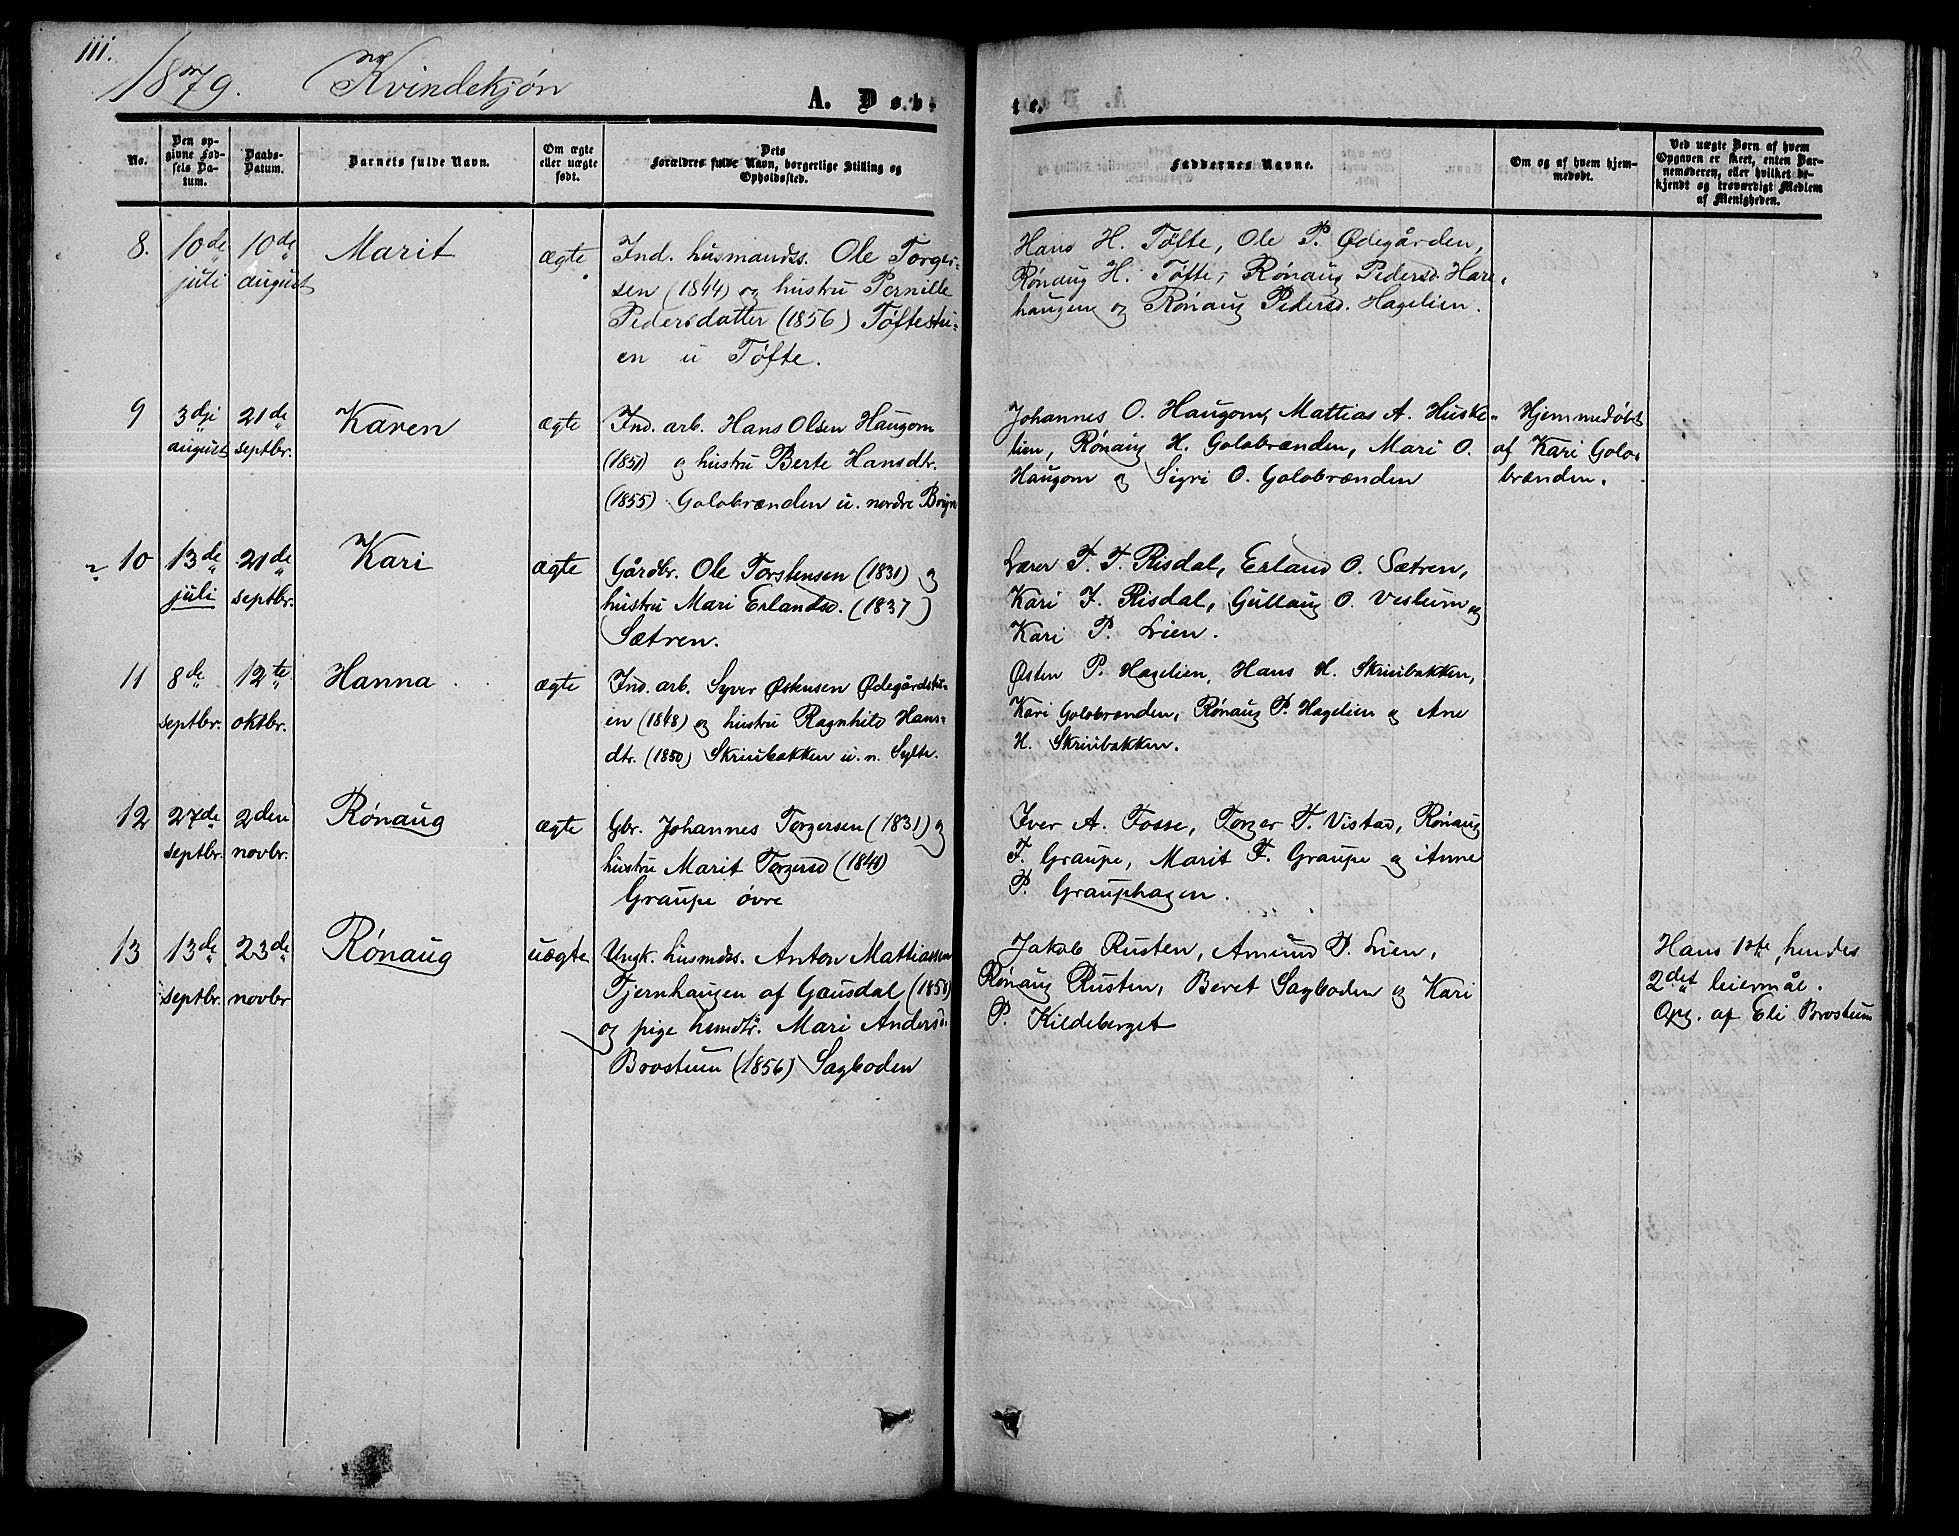 111.
1879. Kvindekjøn
A. Døb-
te.
No.
Den op-
givne Fød-
sels Da-
tum.
Daabs-
Datum.
Barnets fulde Navn.
Om ægte
eller uægte
født.
Dets
Forældres fulde Navn, borgerlige Stilling og
Opholdssted.
Faddernes Navne.
Om og af hvem hjem-
medøbt.
Ved uægte Børn af hvem
Opgaven er skeet, enten Bar-
nemoderen, eller hvilket be-
kjendt og troværdigt Medlem
af Menigheden.
8.
10de
juli
10de
august
Marit
ægte
Ind. husmandss. Ole Torger-
sen (1844) og hustru Pernille
Pedersdatter (1856) Tøftestu-
en u Tøfte.
Hans H. Tøfte, Ole P. Ødegården,
Rønaug H. Tøfte, Rønaug Pedersd. Hare-
haugen og Rønaug Pedersd. Hagelien.
9
3dji
august
21de
septbr.
Karen
ægte
Ind. arb. Hans Olsen Haugom
(1851) og hustru Berte Hansdtr.
(1855) Golobrænden u. nordre Bryn
Johannes O. Haugom, Mattias A. Huske-
lien, Rønaug H. Golobrænden, Mari O.
Haugom og Sigri O. Golobrænden
Hjemmedøbt
af Kari Golo-
brænden.
10
13de
juli
21de
septbr.
Kari
ægte
Gårdbr. Ole Torstensen (1831) og
hustru Mari Erlandsd. (1837)
Sætren.
Lærer T. T. Risdal, Erland O. Sætren,
Kari J. Risdal, Gullaug O. Veslum og
Kari P. Lien.
11
8de
septbr.
12te
oktbr.
Hanna
ægte
Ind. arb. Syver Østensen Ødegårdstu-
en (1848) og hustru Ragnhild Hans-
dtr. (1850) Skriubakken u. n. Sylte.
Østen P. Hagelien, Hans H. Skriubakken,
Kari Golobrænden, Rønaug P. Hagelien og Ane
H. Skriubakken.
12
27de
septbr.
2den
novbr.
Rønaug
ægte
Gbr. Johannes Torgersen (1831) og
hustru Marit Torgersd (1844)
Graupe øvre
Iver A. Fosse, Torger T. Vistad, Rønaug
T. Graupe, Marit F. Graupe og Anne
P. Grauphagen.
13
13de
septbr.
23de
novbr
Rønaug
uægte
Ungk. husmdss. Anton Mattiassen
Tjernhaugen af Gausdal (1858)
og pige hsmdtr. Mari Andersd.
Brostuen (1856) Sagboden
Jakob Rusten, Amund P. Lien,
Rønaug Rusten, Beret Sagboden og Kari
P. Kildeberget
Hans 1ste, hendes
2det leiermål.
Opg. af Eli Brostuen